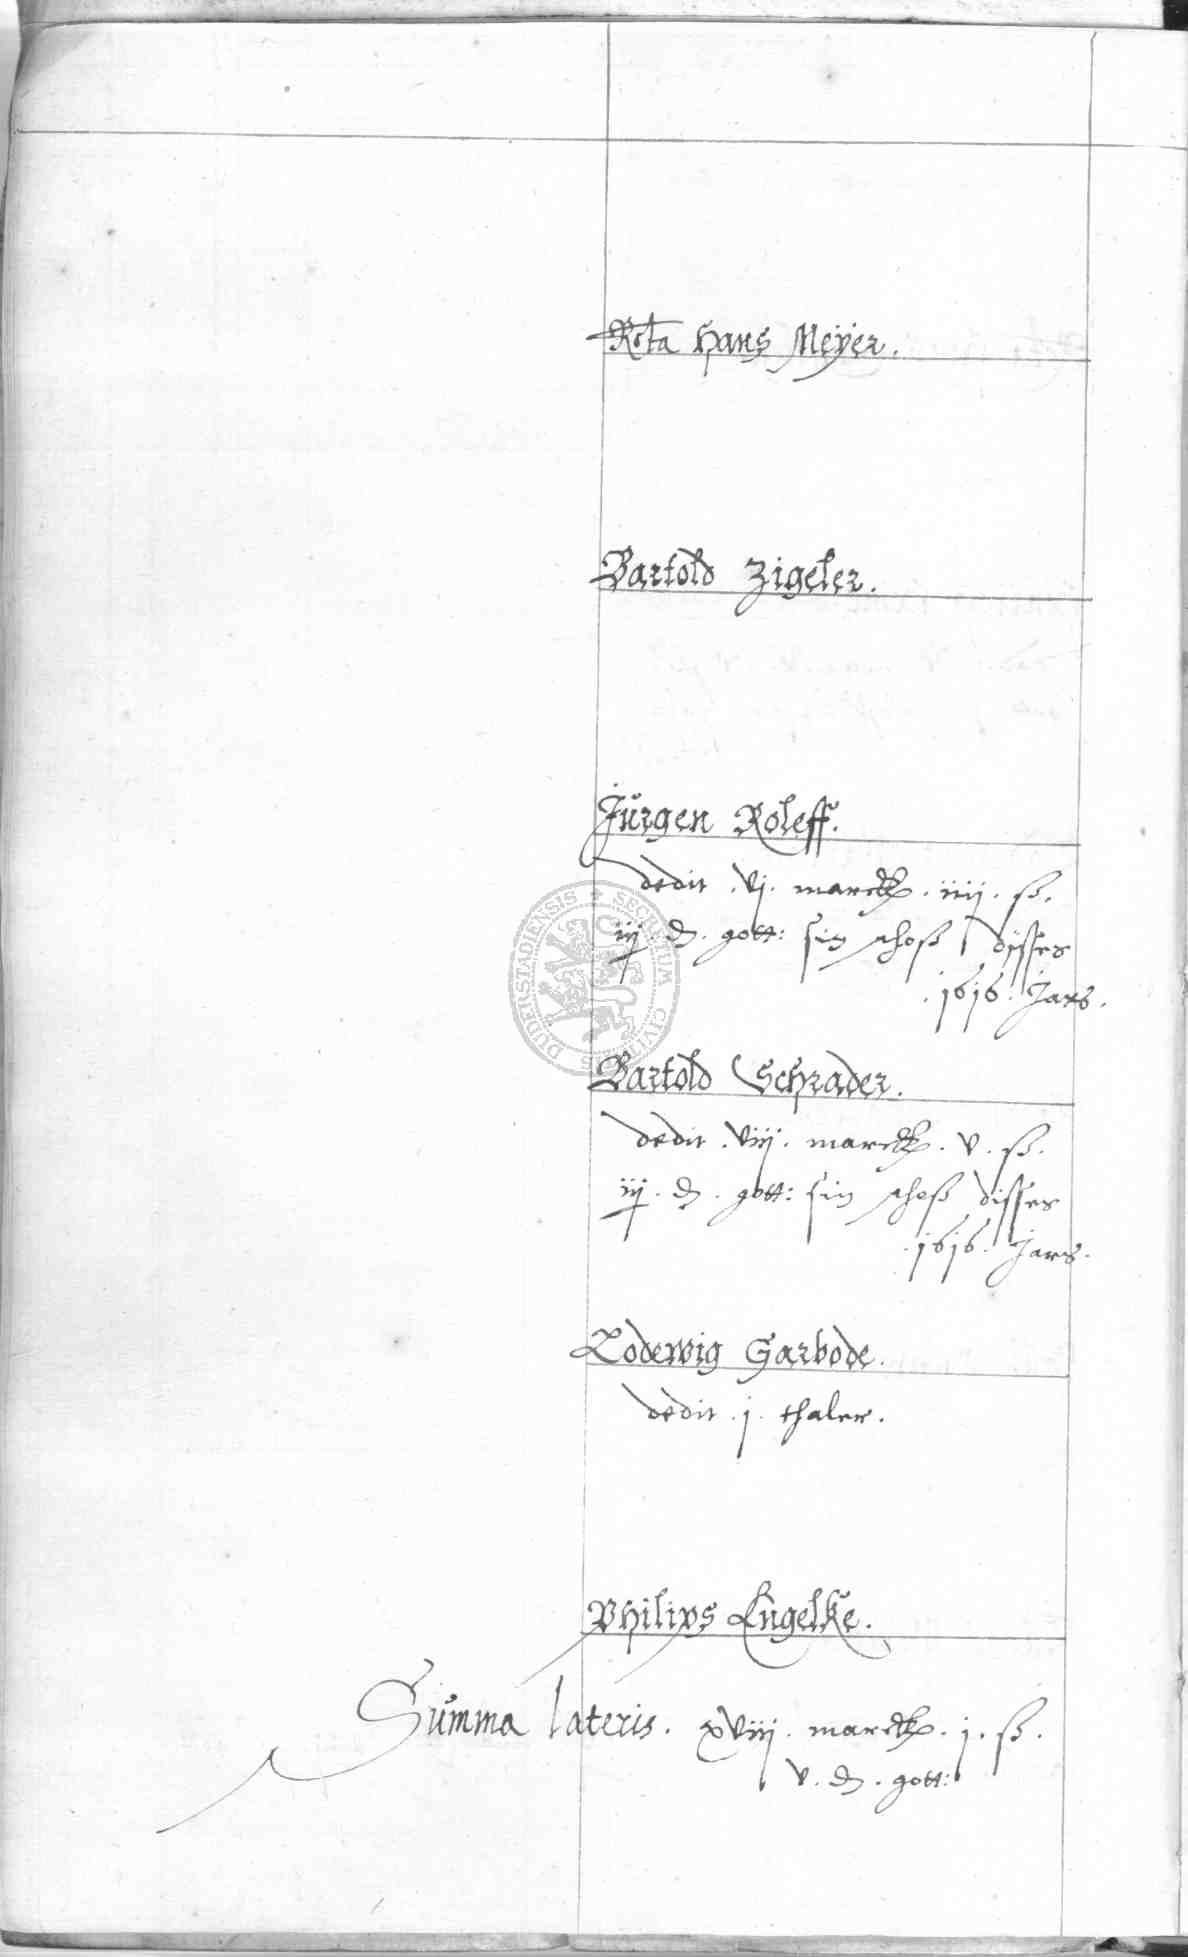 Rcta Hans Meÿer.
Bartold Zigeler.
Jürgen Roleff.
dedit . vj . marck . iiij . ß .
iij . d . gott: sin schoß disses
. 1616 . Jars .
Bartold Schrader.
dedit . viij . marck . v . ß .
iij . d . gott: sin schoß disses
. 1616 . Jars .
Lodewig Garbode.
dedit . j . thaler .
Philips Engelke.
Summa lateris . xviij . marck . j . ß .
v . d . gott:
SECRETUM CIVITATIS DUDERSTADIENSIS